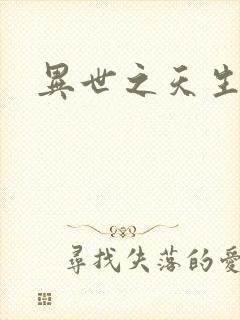 異世之天生
尋找失落的愛